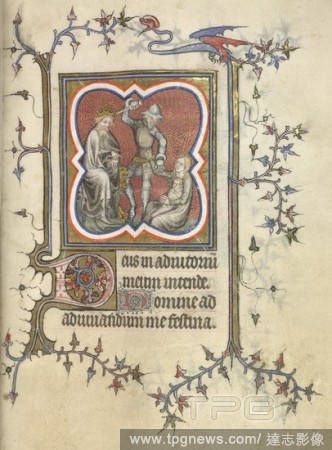 Deus in adiutoriū
meum intende.
Domine ad
adiuuandum me festina.
TPG
www.tpgnews.com/ 達志影像